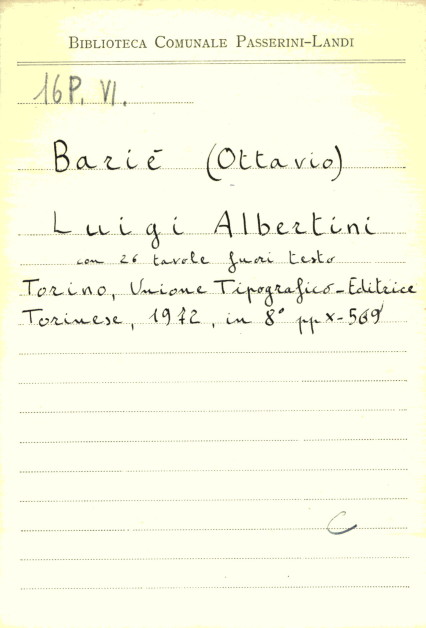 BIBLIOTECA COMUNALE PASSERINI-LANDI
16P. VI.
Barié (Ottavio)
Luigi Albertini
con 26 tavole fuori testo
Torino, Unione Tipografico-Editrice
Torinese, 1972, in 8° pp X-569
C